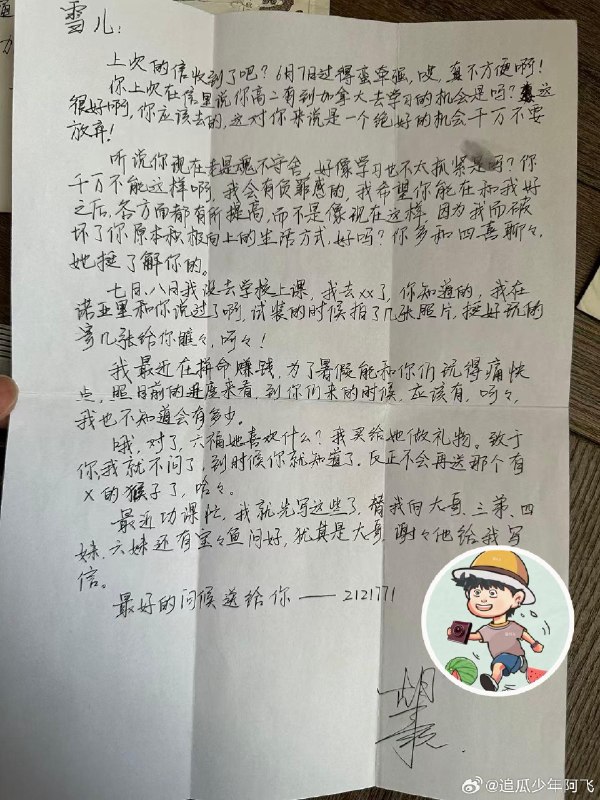 雪儿:
上次的信收到了吧?6月7日过得蛮牵强,哎,真不方便啊!
你上次在信里说你高二有到加拿大去学习的机会是吗?这
很好啊,你应该去的,这对你来说是一个绝好的机会千万不要
放弃!
听说你现在老是魂不守舍,好像学习也不太抓紧是吗?你
千万不能这样啊,我会有负罪感的,我希望你能在和我好
之后,各方面都有所提高,而不是像现在这样,因为我而破
坏了你原本积极向上的生活方式,好吗?你多和四喜聊々,
她挺了解你的。
七日、八日我没去学校上课,我去xx了,你知道的,我在
诺亚里和你说过了啊,试装的时候拍了几张照片,挺好玩的
寄几张给你瞧々,呵々!
我最近在拼命赚钱,为了暑假能和你们玩得痛快
点,照目前的进度来看,到你们来的时候,应该有,呵々,
我也不知道会有多少。
哦,对了,六福她喜欢什么?我买给她做礼物。致于
你,我就不问了,到时候你就知道了,反正不会再送那个有
X的猴子了,哈々。
最近功课忙,我就先写这些了,替我向大哥、三弟、四
妹、六妹还有宝々鱼问好,犹其是大哥,谢々他给我写
信。
最好的问候送给你——2121771
胡
@追瓜少年阿飞